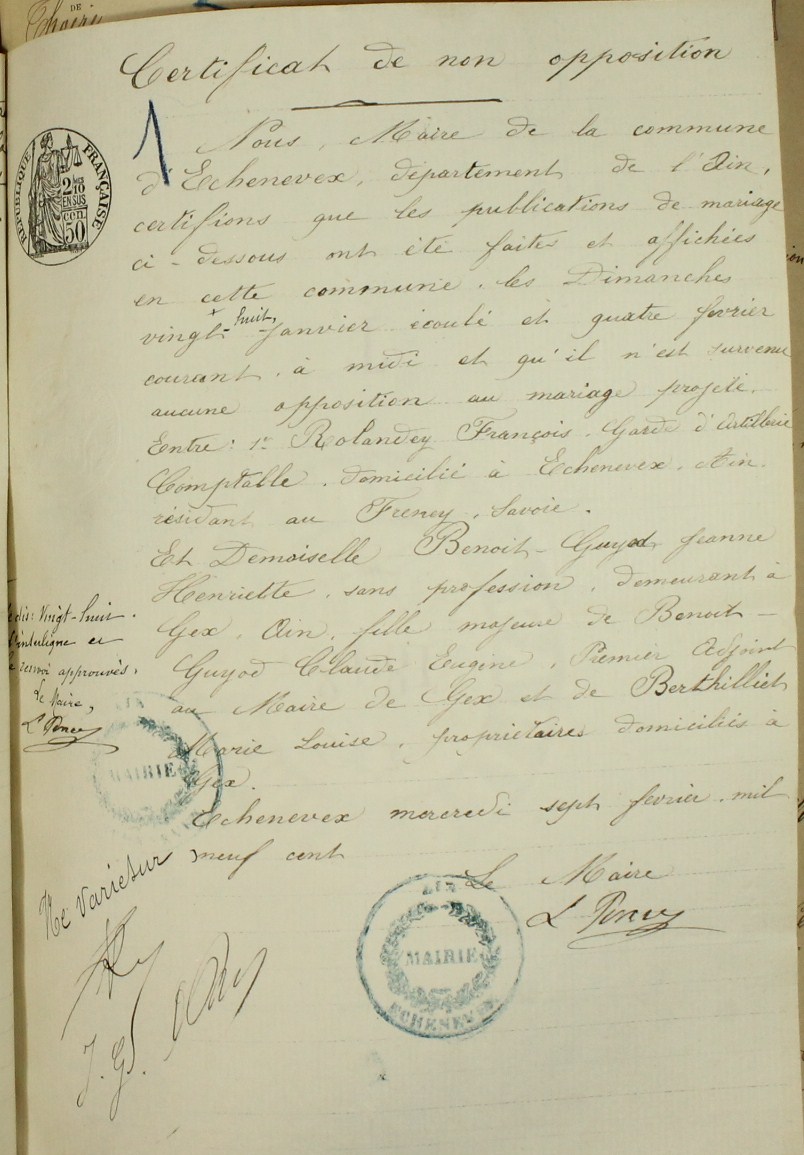 DE
Certificat de non opposition
1
Nous, Maire de la commune
d'Echenevex, département de l'Ain,
certifions que les publications de mariage
ci-dessous ont été faites et affichées
en cette commune, les Dimanches
vingt-huit janvier écoulé et quatre fevrier
courant, à midi et qu'il n'est survenu
aucune opposition au mariage projeté.
Entre: 1° Rolandey François, Garde d'Artillerie
Comptable, domicilié à Echenevex, Ain.
résidant au Freney, Savoie.
Et Demoiselle Benoit-Guyod Jeanne
Henriette, sans profession, demeurant à
Gex, Ain, fille majeure de Benoit-
Guyod Claude Eugène, Premier Adjoint
au Maire de Gex et de Berthilliet
Marie Louise, propriétaires domiciliés à
Gex.
Echenevex mercredi sept fevrier, mil
neuf cent
Le Maire
L Poncy
RÉPUBLIQUE FRANÇAISE
2/10
EN SUS
50 cen
Vingt-huit
interligne et
renvoi approuvés,
Le Maire,
L Poncy
AIN
MAIRIE
Ne varietur
J. G.
AIN
MAIRIE
ECHENEVEX